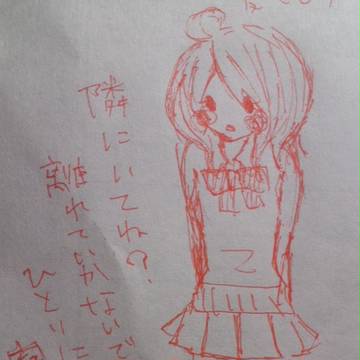 隣にいてね?
離れていかないで
ひとりに